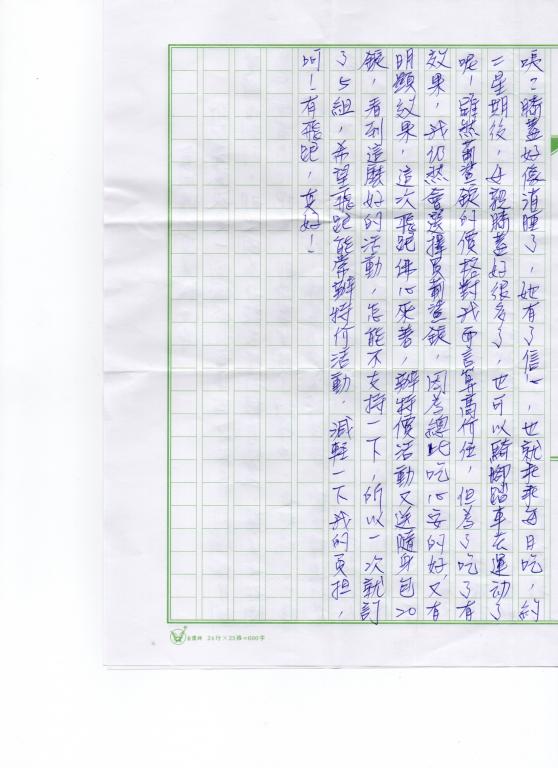 咦？膝蓋好像消腫了，她有了信心，也就乖乖每日吃，約
二星期後，母親膝蓋好很多了，也可以騎腳踏車去運動了
呢！雖然葡萄糖錠的價格對我而言算高價位，但為了吃了有
效果，我仍然會選擇買葡萄糖錠，因為總比吃心安的好，又有
明顯效果，這次飛跑佛心來著，辦特價活動又送隨身包20
錠，看到這麼好的活動，怎能不支持一下，所以一次就訂
了5組，希望飛跑能常辦特价活動，減輕一下我的負担，
呵！有飛跑，真好！
24行×25格=600字